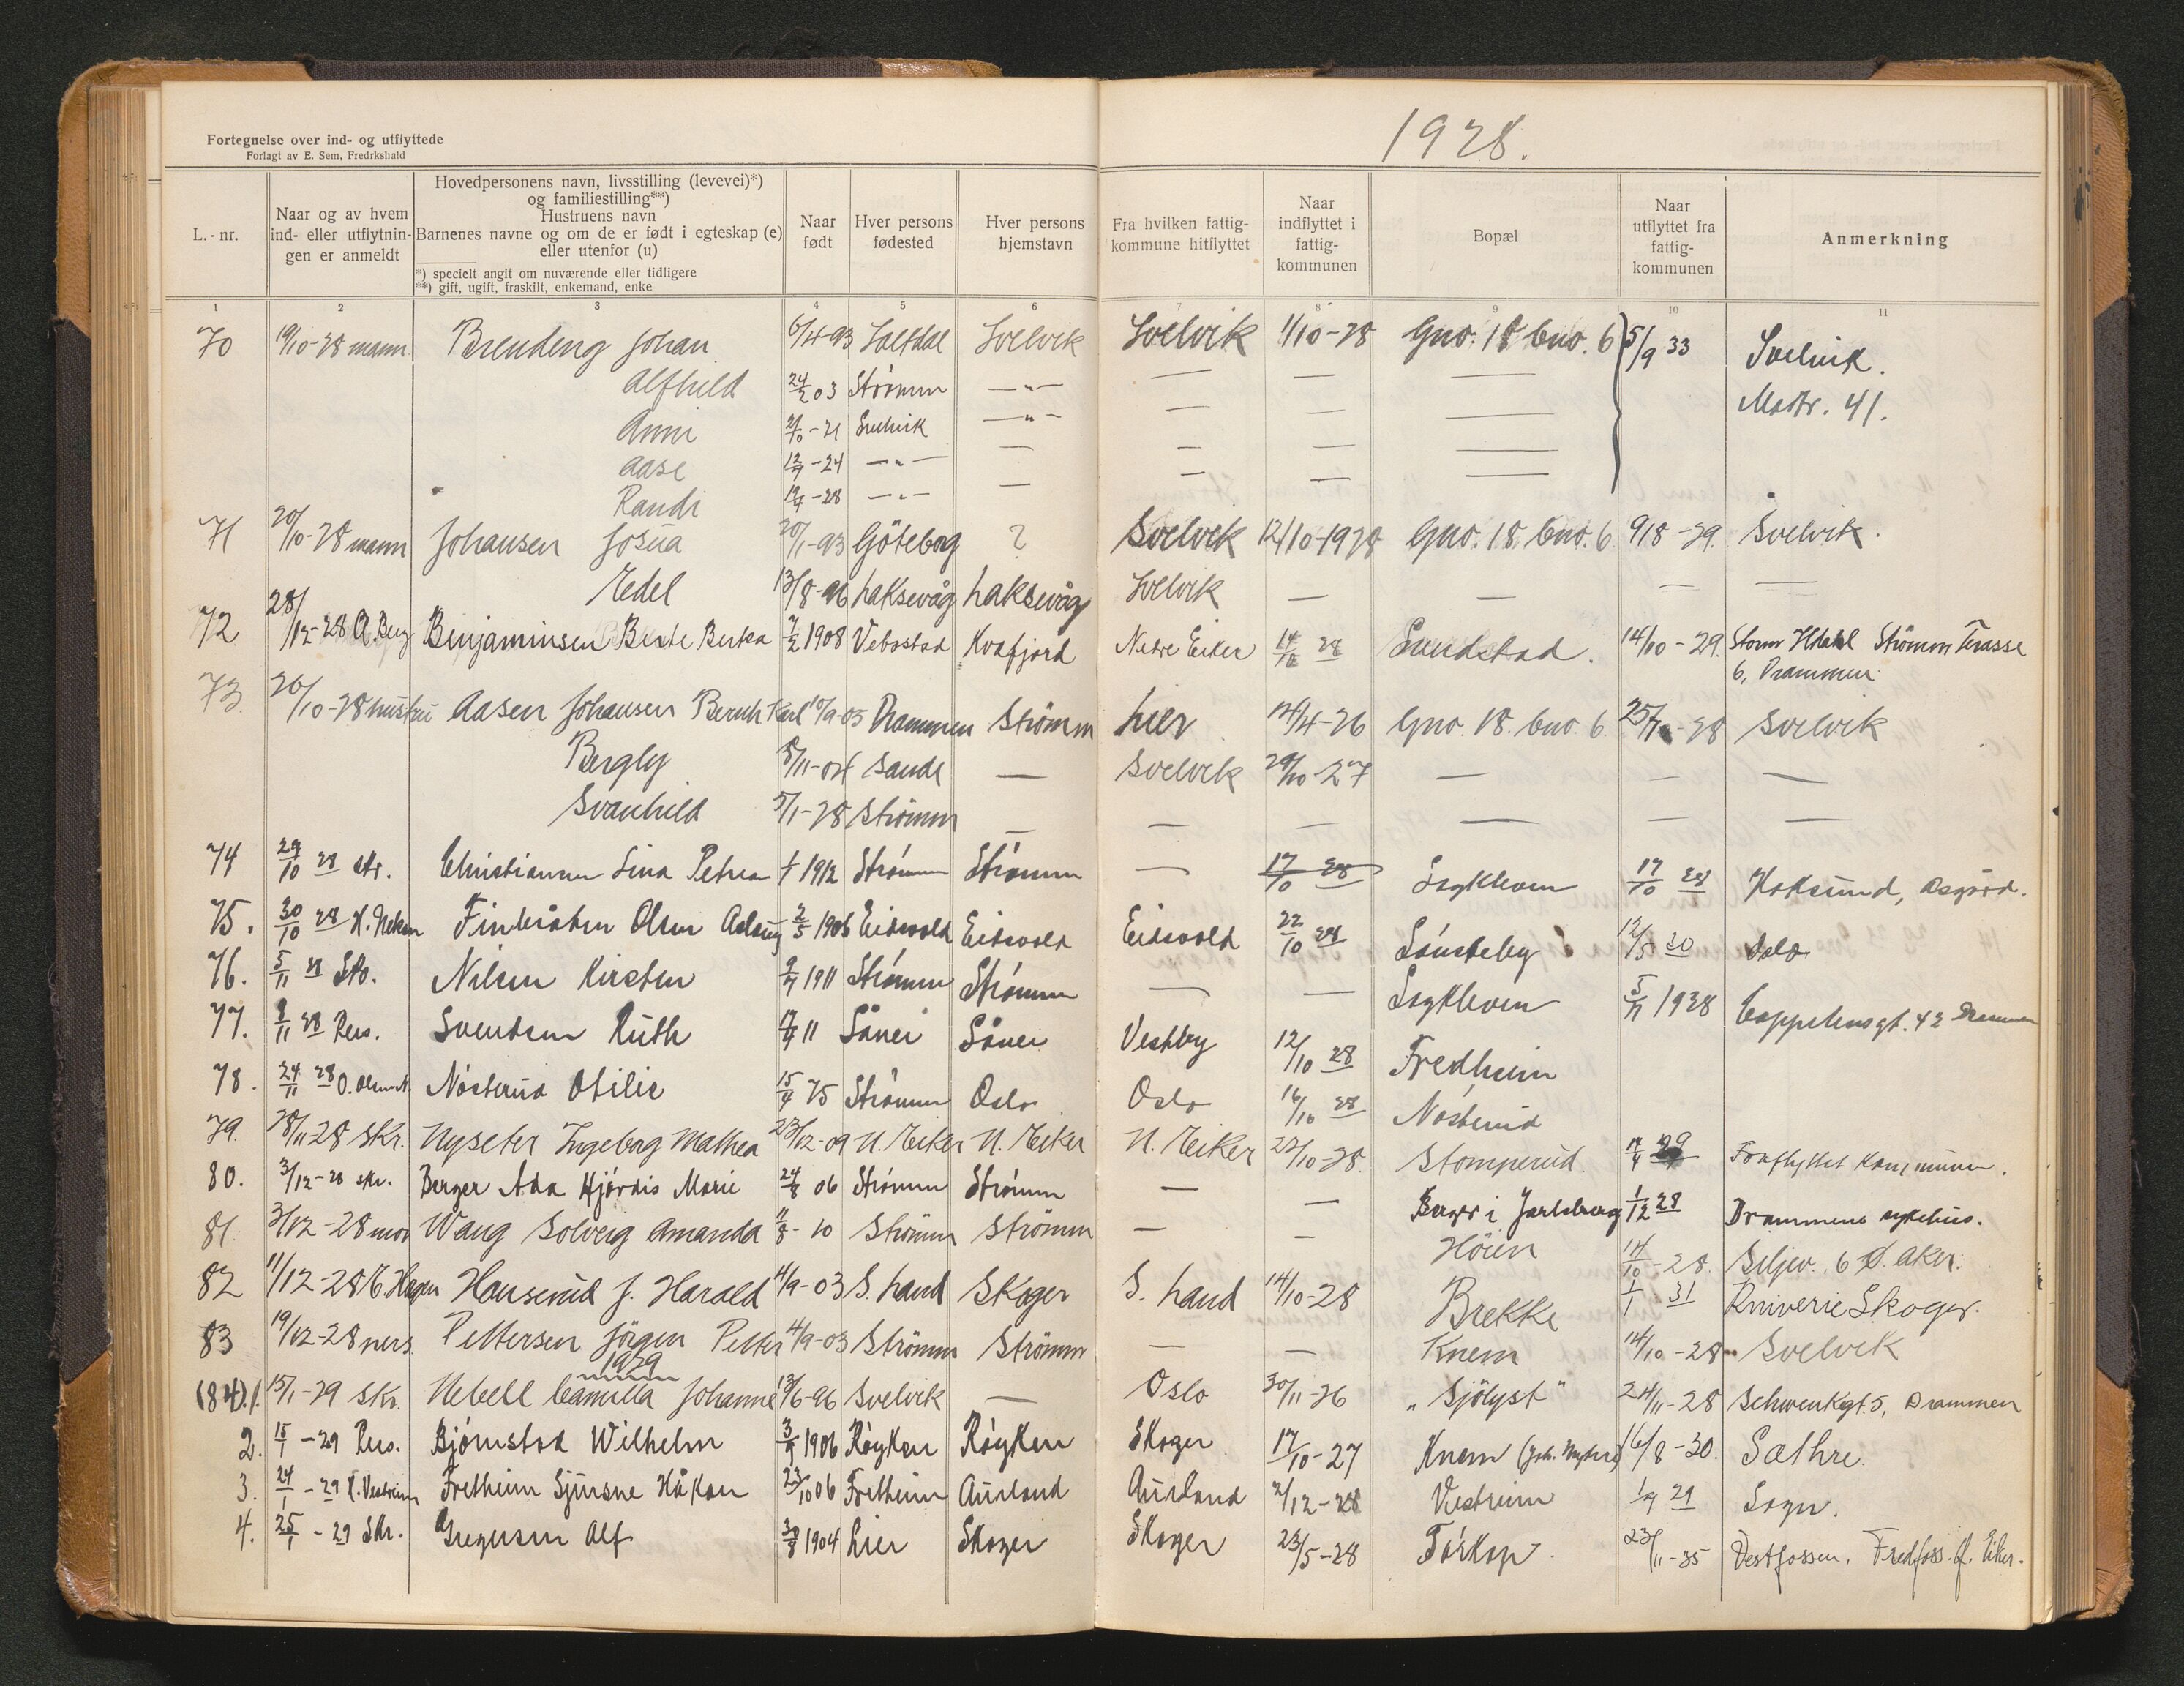 Fortegnelse over ind- og utflyttede
Forlagt av E. Sem, Fredrkshald
1928.
L.-nr.
Naar og av hvem ind- eller utflytnin-gen er anmeldt
Hovedpersonens navn, livsstilling (levevei)*) og familiestilling**)
Hustruens navn
Barnenes navne og om de er født i egteskap (e) eller utenfor (u)
*) specielt angit om nuværende eller tidligere
**) gift, ugift, fraskilt, enkemand, enke
Naar født
Hver persons fødested
Hver persons hjemstavn
Fra hvilken fattig-kommune hitflyttet
Naar indflyttet i fattig-kommunen
Bopæl
Naar utflyttet fra fattig-kommunen
Anmerkning
1 2 3 4 5 6 7 8 9 10 11
70 19/10-28 mann Brendeng Johan 6/4-93 Saltdal Svelvik Svelvik 1/10-28 Gno. 18 bno. 6 5/9 33 Svelvik.
Alfhild 24/2 03 Strömm —"— — — — Mostr. 41.
Anni 21/10-21 Svelvik —"— — — —
Aase 12/9-24 —"— — — — —
Randi 19/7-28 —"— — — — —
71 20/10-28 mann Johansen Josua 20/1-93 Göteborg ? Svelvik 12/10-1928 Gno. 18. bno. 6 9/8-29. Svelvik.
Edel 13/8-96 Laksevåg Laksevåg Svelvik — — — —
72 28/12-28 A. Berg Benjaminsen Berte Berka 7/2 1908 Vebostad Kvæfjord Nedre Eiker 14/12 28 Sundstad. 14/10-29. Strömm Terasse
6, Drammen
73 26/10-28 hustru Aasen Johansen Bernh Karl 10/9-05 Drammen Strömm Lier 14/4-26 Gno. 18. bno. 6 25/10-28 Svelvik
Bergly 8/11-04 Sande — Svelvik 29/10-27 — — —
Svanhild 5/1-28 Strömm — — — — — —
74 29/10 28 skr. Christiansen Lina Petrea 1912 Strömm Strömm — 17/10 28 Sagkleven 17/10 28 Hoksund, Asgård.
75. 30/10 28 Olsen Aslaug 2/5 1906 Eidsvold Eidsvold Eidsvold 22/10 28 Lönsteby 12/5 30 Oslo
76. 5/11 28 Skr. Nilsen Kirsten 9/7 1911 Strömm Strömm — — Sagkleven 5/11 1928 Cappelensgt. 42 Drammen
77. 8/11 28 Pers. Svendsen Ruth 11 Såner Såner Vestby 12/10 28 Fredheim
78. 24/11 28 O. Nösterud Otilie 15/9 75 Strömm Oslo Oslo 16/10 28 Nösterud
79. 28/11 28 skr. Nyseter Ingeborg Mathea 23/12-09 N. Eiker N. Eiker N. Eiker 22/10-28. Stomperud 29 Fraflyttet kommunen.
80. 3/12-28 skr. Berger Ada Hjördis Marie 24/8 06 Strömm Strömm — — Berger i Jarlsberg 1/12 28 Drammens sykehus.
81. 3/12-28 mor Wang Solveig Amanda 11/8-10 Strömm Strömm — — Höien 14/10-28. Seljev. 6 Ø. Aker.
82 11/12-28 E. Hagen Hanserud J. Harald 4/9-03 S. Land Skoger S. Land 14/10-28 Brekke 1/1 31 Kniverie Skoger.
83 19/12-28 pers. Pettersen Jörgen Petter 4/9-03 Strömm Strömm — — Knem 14/10-28 Svelvik
1929
(84)1. 15/1-29 skr. Nebell Camilla Johanne 13/6-96 Svelvik — Oslo 30/11-26 "Sjölyst" 24/11-28 Schwenkgt. 5, Drammen
2. 15/1-29 Pers. Bjørnstad Wilhelm 3/9 1906 Røyken Røyken Skoger 17/10-27 Knem 16/8-30. Sæthre.
3. 24/1-29 K. Vestrum Fretheim Sjursne Håkon 23/10 06 Fretheim Aurland Aurland 2/12-28 Vestrum 1/9 29 Sogn.
4. 25/1-29 Skr. Gregersen Alf 30/8 1904 Lier Skoger Skoger 23/5-28 Tørkop. 23/11-35 Vestfossen, Fredfoss. Ø. Eiker.